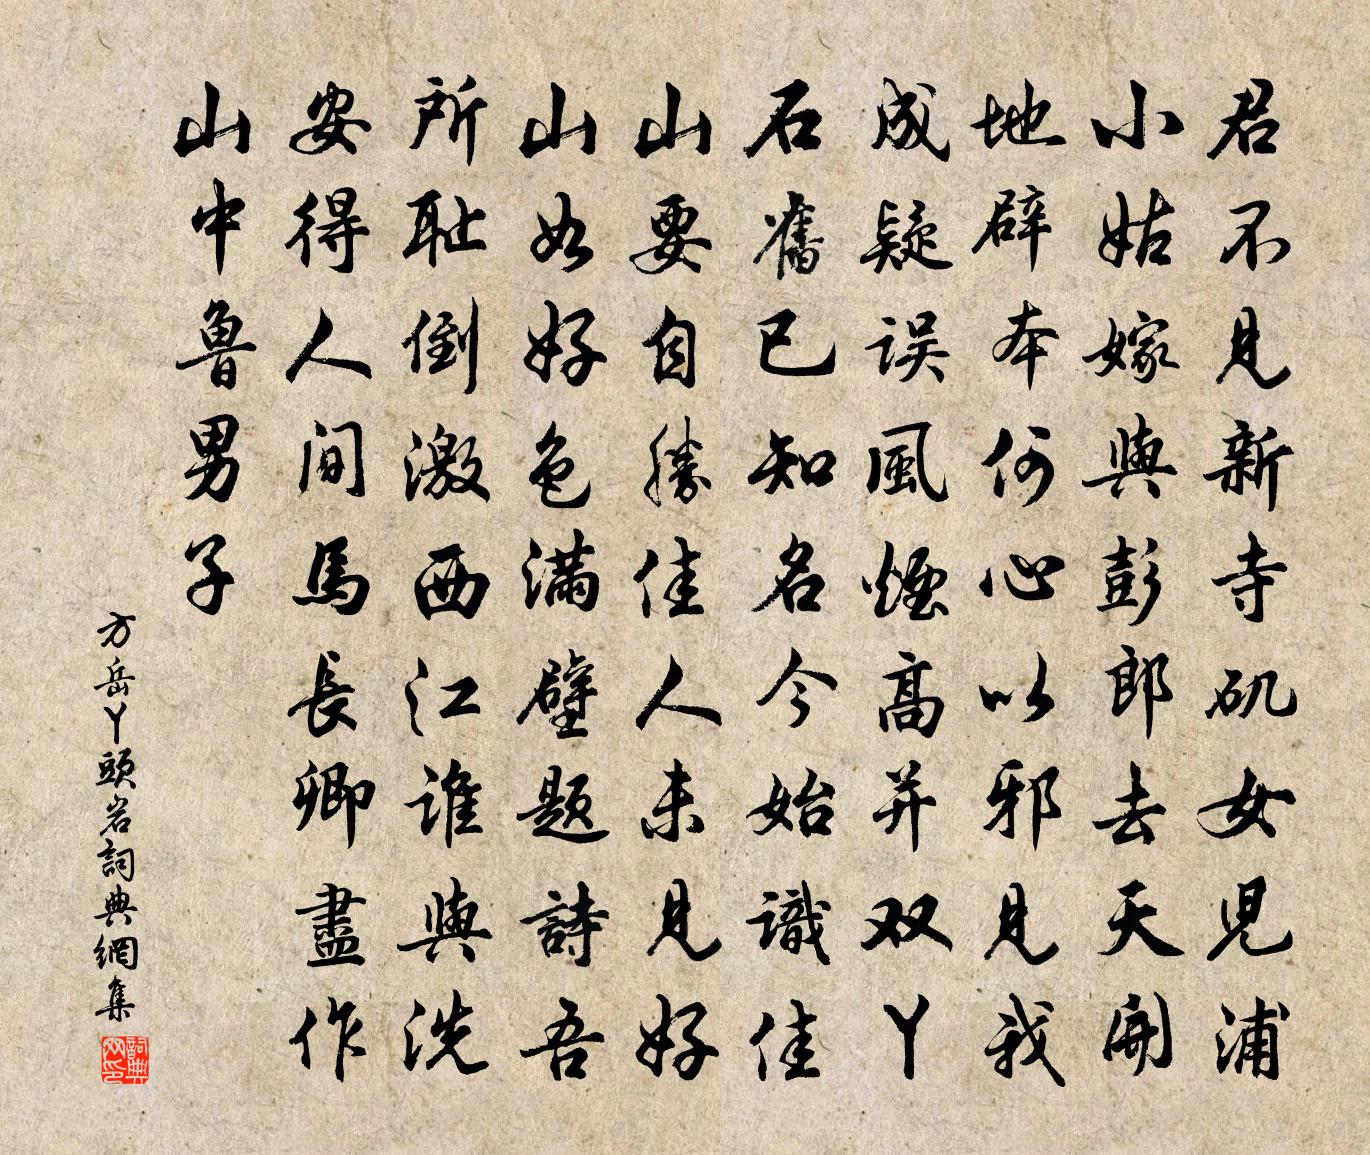 君不見新寺矶女児浦
小姑嫁與彭郎去天開
地辟本何心以邪見我
成疑误風煙高并双丫
石舊已知名今始識佳
山要自勝佳人未見好
山如好色满壁题詩吾
所耻倒激西江谁與洗
安得人间馬長卿盡作
山中魯男子
方岳丫頭岩詞典網集
詞典网印